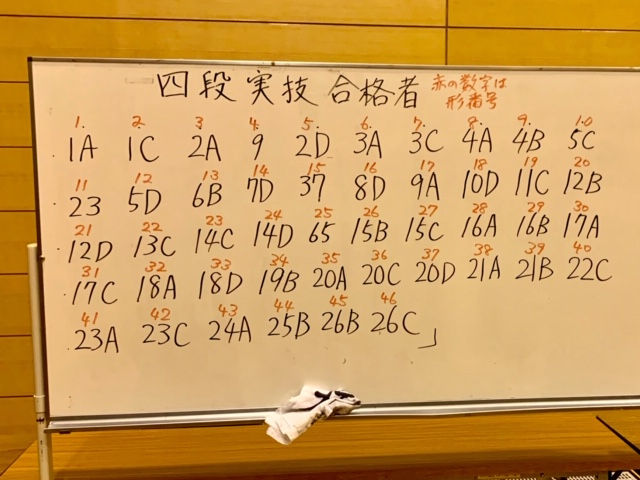 四段実技合格者 赤の数字は
形番号
1. 2. 3. 4. 5. 6. 7. 8. 9. 10
1A 1C 2A 9 2D 3A 3C 4A 4B 5C
11 12 13 14 15 16 17 18 19 20
23 5D 6B 7D 37 8D 9A 10D 11C 12B
21 22 23 24 25 26 27 28 29 30
12D 13C 14C 14D 65 15B 15C 16A 16B 17A
31 32 33 34 35 36 37 38 39 40
17C 18A 18D 19B 20A 20C 20D 21A 21B 22C
41 42 43 44 45 46
23A 23C 24A 25B 26B 26C」